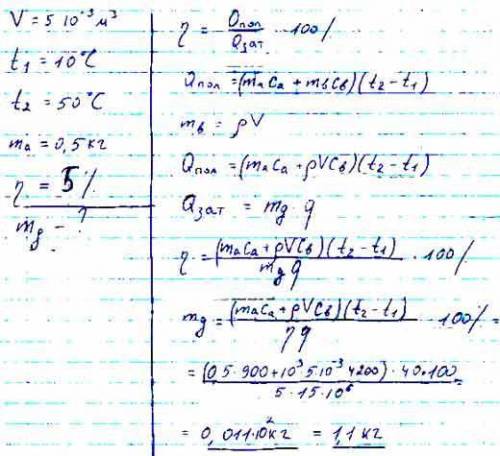 V = 5 10⁻³ м³
t₁ = 10°C
t₂ = 50°C
mₐ = 0,5 кг
η = 5%
m_g - ?
η = Qпол / Qзат 100%
Qпол = (mₐCₐ + mвCв)(t₂ - t₁)
mв = ρV
Qпол = (mₐCₐ + ρVCв)(t₂ - t₁)
Qзат = m_g · q
η = (mₐCₐ + ρVCв)(t₂ - t₁) / m_g q · 100%
m_g = (mₐCₐ + ρVCв)(t₂ - t₁) / ηq · 100% =
= (0,5·900 + 10³ 5·10⁻³ 4200) · 40·100 / 5·15·10⁶
= 0,011·10² кг = 1,1 кг